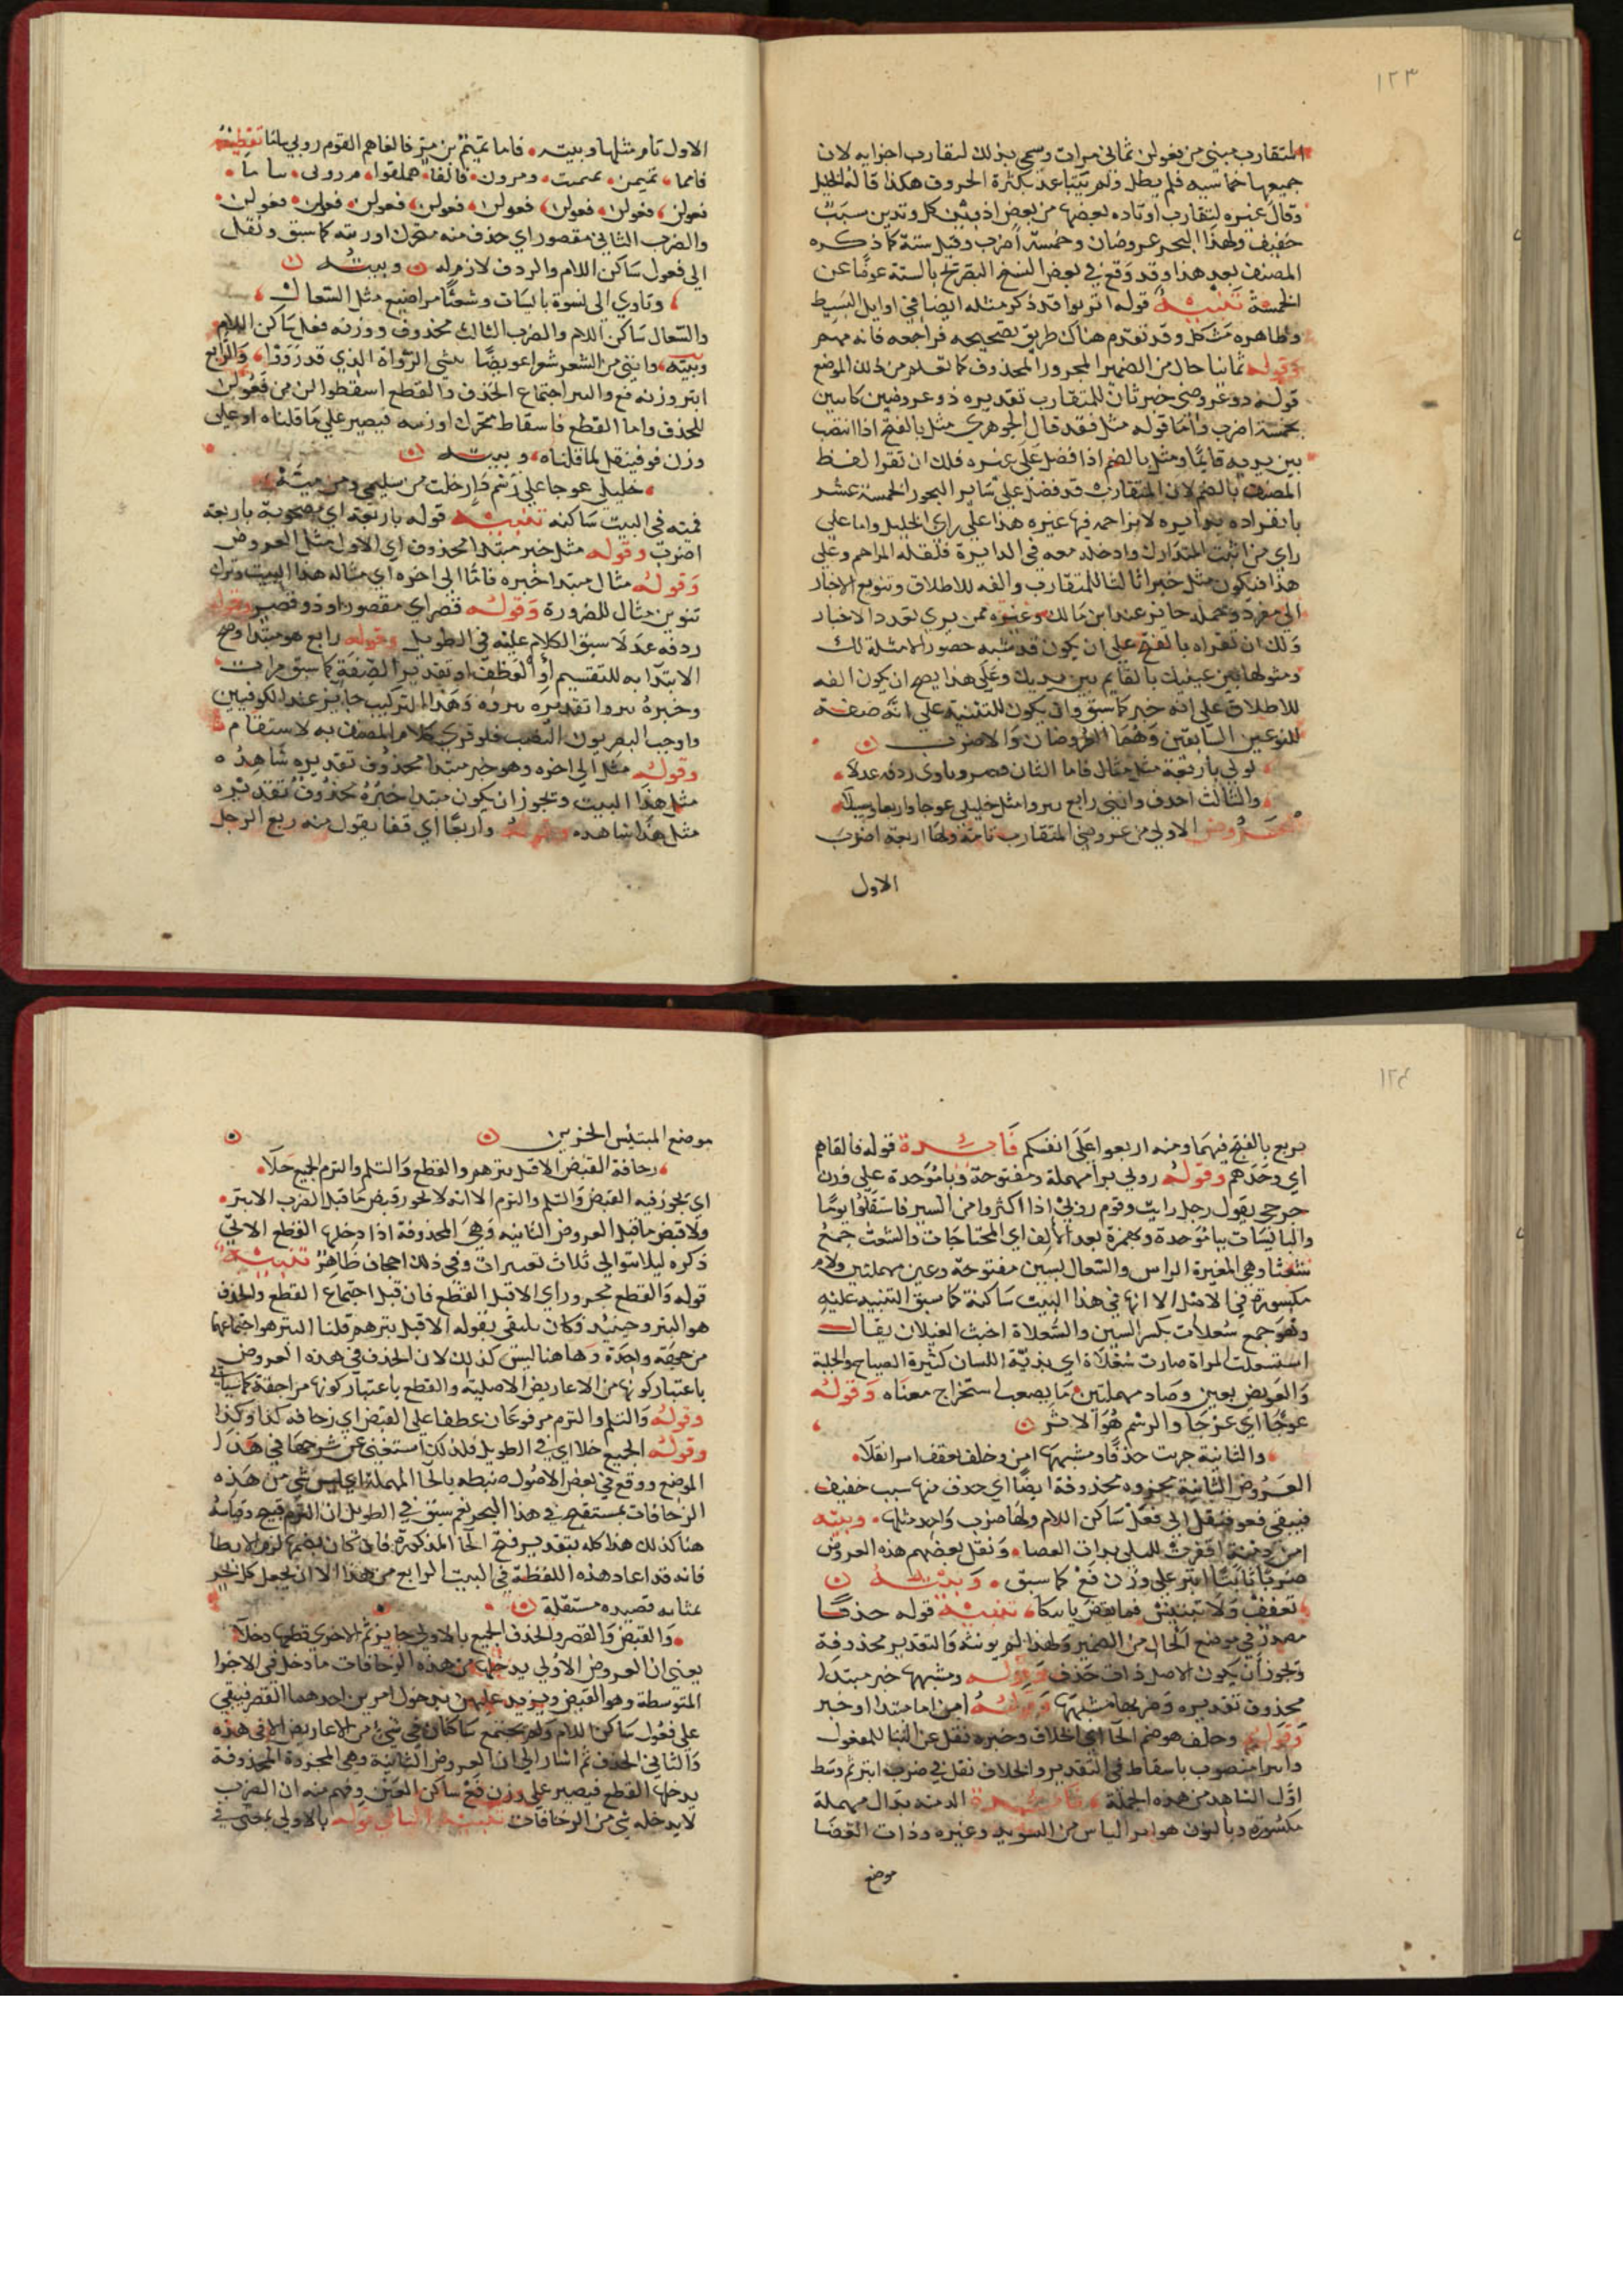 ١٢٣
المتقارب مبني من فعولن ثماني مرات وسمي بذلك لتقارب اجزايه لان
جميعها خماسيه فلم يطل ولم يتباعد بكثرة الحروف هكذا قاله الخليل
وقال غيره لتقارب اوتاده بعضها من بعض اذ بين كل وتدين سبب
خفيف ولهذا البحر عروضان وخمسة اضرب وقيل ستة كما ذكره
المصنف بعد هذا وقد وقع في بعض النسخ التصريح بالستة عوضا عن
الخمسة تنبيه قوله اتربوا قد ذكر مثله ايضا في اوايل البسيط
وظاهره مشكل وقد تقدم هناك طريق تصحيحه فراجعه فانه مهم
وقوله ثمانيا حال من الضمير المجرور المحذوف كما تقدم من ذلك الموضع
قوله ذو عروضي خبر ثان للمتقارب تقديره ذو عروضين كاين
بخمسة اضرب واما قوله مثل فقد قال الجوهري مثل بالفتح اذا انتصب
بين يديه قايما ومثل بالضم اذا فضل على غيره فلك ان تقرا لفظ
المصنف بالضم لان المتقارب قد فضل على ساير البحور الخمسة عشر
بانفراده بدايره لا يزاحمه فيها غيره هذا على راي الخليل واما على
راي من اثبت المتدارك وادخله معه في الدايرة فلقلة المزاحم وعلى
هذا فيكون مثل خبرا ثالثا للمتقارب والفه للاطلاق وتنويع الاخبار
الى مفرد وجملة جايز عند ابن مالك وغيره ممن يري تعدد الاخبار
ولك ان تقراه بالفتح على ان يكون قد شبه حضور الامثلة لك
ومثولها بين عينيك بالقايم بين يديك وعلى هذا يصح ان يكون الفه
للاطلاق على انه خبر كما سبق وان يكون للتثنية على انه صفة
للنوعين السابقين وهما العروضان والاضرب
لولي باربعة مثل مثال فاما الثان قصر وياوي ردفه عدلا
والثالث احذف وابني رابع بتروا مثل خليلي عوجا واربعا وسلا
العروض الاولي من عروضي المتقارب تامة ولها اربعة اضرب
الاول
الاول تام مثلها وبيته فاما تميم تميم بن مر فالفاهم القوم روبي نياما تقطيعه
فعولن فعولن فعولن فعولن فعولن فعولن فعولن فعولن
والضرب الثاني مقصور اي حذف منه متحرك اوزنته كما سبق ونقل
الي فعول ساكن اللام والردف لازم له وبيته
وياوي الى نسوة بايسات وشعثا مراضيع مثل السعال
والسعال ساكن اللام والضرب الثالث محذوف ووزنه فعل ساكن اللام
وبيته وابني من الشعر شعرا عويصا ينسي الرواة الذي قد رووا والرابع
ابتر وزنه فع والبتر اجتماع الحذف والقطع اسقطوا لن من فعولن
للحذف واما القطع فاسقاط متحرك اوزنته فيصير على ما قلناه او على
وزن فو فينقل لما قلناه وبيته
خليلي عوجا على رسم دار خلت من سليمي ومن ميه
فميه في البيت ساكنه تنبيه قوله باربعة اي مصحوبة باربعة
اضرب وقوله مثل خبر مبتدا محذوف اي الاول مثل العروض
وقوله مثال مبتدا خبره فاما الى اخره اي مثاله هذا البيت وترك
تنوين مثال للضرورة وقوله قصر اي مقصور او ذو قصر وقوله
ردفه عدلا سبق الكلام عليه في الطويل وقوله رابع هو مبتدا وصح
الابتدا به للتقسيم او العطف او تقدير الصفة كما سبق مرات
وخبره بتروا تقديره بتروه وهذا التركيب جايز عند الكوفيين
واوجب البصريون النصب فلو قري كلام المصنف به لاستقام
وقوله مثل الى اخره وهو خبر مبتدا محذوف تقديره شاهده
مثل هذا البيت ويجوز ان يكون مبتدا خبره محذوف تقديره
مثل هذا شاهده وقوله واربعا اي قفا يقول منه ربع الرجل
١٢٤
يربع بالفتح فيهما ومنه اربعوا على انفسكم فايدة قوله فالفاهم
اي وجدهم وقوله روبي برا مهملة مفتوحة وبا موحدة على وزن
جرحى يقول رجل رايب وقوم روبي اذا اكثروا من السير فاستقلوا نوما
والبايسات ببا موحدة وبهمزة بعد الالف اي المحتاجات والشعث جمع
شعثا وهي المغبرة الراس والسعال بسين مفتوحة وعين مهملتين ولام
مكسورة في الاصل الا انها في هذا البيت ساكنة كما سبق التنبيه عليه
وهو جمع سعلات بكسر السين والسعلاة اخبث الغيلان يقال
استسعلت المراة صارت سعلاة اي بذية اللسان كثيرة الصياح والجلبة
والعويص بعين وصاد مهملتين ما يصعب استخراج معناه وقوله
عوجا اي عرجا والرسم هو الاثر
والثانية جزت حذفا ومشبهها امن وخلف تعفف ابترا نقلا
العروض الثانية مجزوه محذوفة ايضا اي حذف منها سبب خفيف
فيبقي فعو فينقل الي فعل ساكن اللام ولها ضرب واحد مثلها وبيته
امن دمنة اقفرت لسلمي بذات الغضا ونقل بعضهم هذه العروض
ضربا ثانيا ابتر على وزن فع كما سبق وبيته
تعفف ولا تبتيس فما يقض ياتيكا تنبيه قوله حذفا
مصدر في موضع الحال من الضمير ولهذا لم يونثه والتقدير محذوفة
ويجوز ان يكون الاصل ذات حذف وقوله ومشبهها خبر مبتدا
محذوف تقديره وضربها مشبهها وقوله امن اما مبتدا او خبر
وقوله وخلف هو بضم الخا اي الخلاف وخبره نقل على البنا للمفعول
وابترا منصوب باسقاط في التقدير والخلاف نقل في ضرب ابتر ثم وسط
اول الشاهد من هذه الجملة فايدة الدمنه بدال مهملة
مكسورة وبالنون هو اثر الناس من السويد وغيره وذات الغضا
موضع
موضع المبتيس الحزين
زحافة القبض الا قبل بترهم والقطع والثلم والثرم الجميع حلا
اي يجوز فيه القبض والثلم والثرم الا انه لا يجوز قبض ما قبل الضرب الابتر
ولا قبض ما قبل العروض الثانيه وهي المحذوفة اذا دخلها القطع الاتي
ذكره ليلا يتوالى ثلاث تغييرات وفي ذلك اجحاف ظاهر تنبيه
قوله والقطع مجرور اي الا قبل القطع فان قيل اجتماع القطع والحذف
هو البتر وحينيذ فكان يكتفي بقوله الا قبل بترهم قلنا البتر هو اجتماعهما
من جهة واحدة وهاهنا ليس كذلك لان الحذف في هذه العروض
باعتبار كونها من الاعاريض الاصلية والقطع باعتبار كونها مزاحفة كما سياتي
وقوله والثلم والثرم مرفوعان عطفا على القبض اي زحافه كذا وكذا
وقوله الجميع خلا اي في الطويل فلذلك استغني عن شرحها في هذا
الموضع ووقع في بعض الاصول ضبطه بالحا المهملة اي ليس شي من هذه
الزحافات بمستقبح في هذا البحر نعم سبق في الطويل ان الثرم قبيح وقياسه
هنا كذلك هذا كله بتقدير فتح الحا المذكورة فان كان بضمها لزم الايطا
فانه قد اعاد هذه اللفظة في البيت الرابع من هذا الا ان يجعل كل بحر
بمثابه قصيده مستقلة
والقبض والقصر والحذف الجميع بالاولي جايز ثم الاخري قطعها دخلا
يعني ان العروض الاولي يدخلها من هذه الزحافات ما دخل في الاجزا
المتوسطة وهو القبض ويزيد عليهن بدخول امرين احدهما القصر فيبقي
على فعول ساكن اللام ولم يجتمع ساكنان في شي من الاعاريض الا في هذه
والثاني الحذف ثم اشار الى ان العروض الثانية وهي المجزوة المحذوفة
يدخلها القطع فيصير على وزن فع ساكن العين وفهم منه ان الضرب
لا يدخله شي من الزحافات تنبيه قوله بالاولي بمعني في